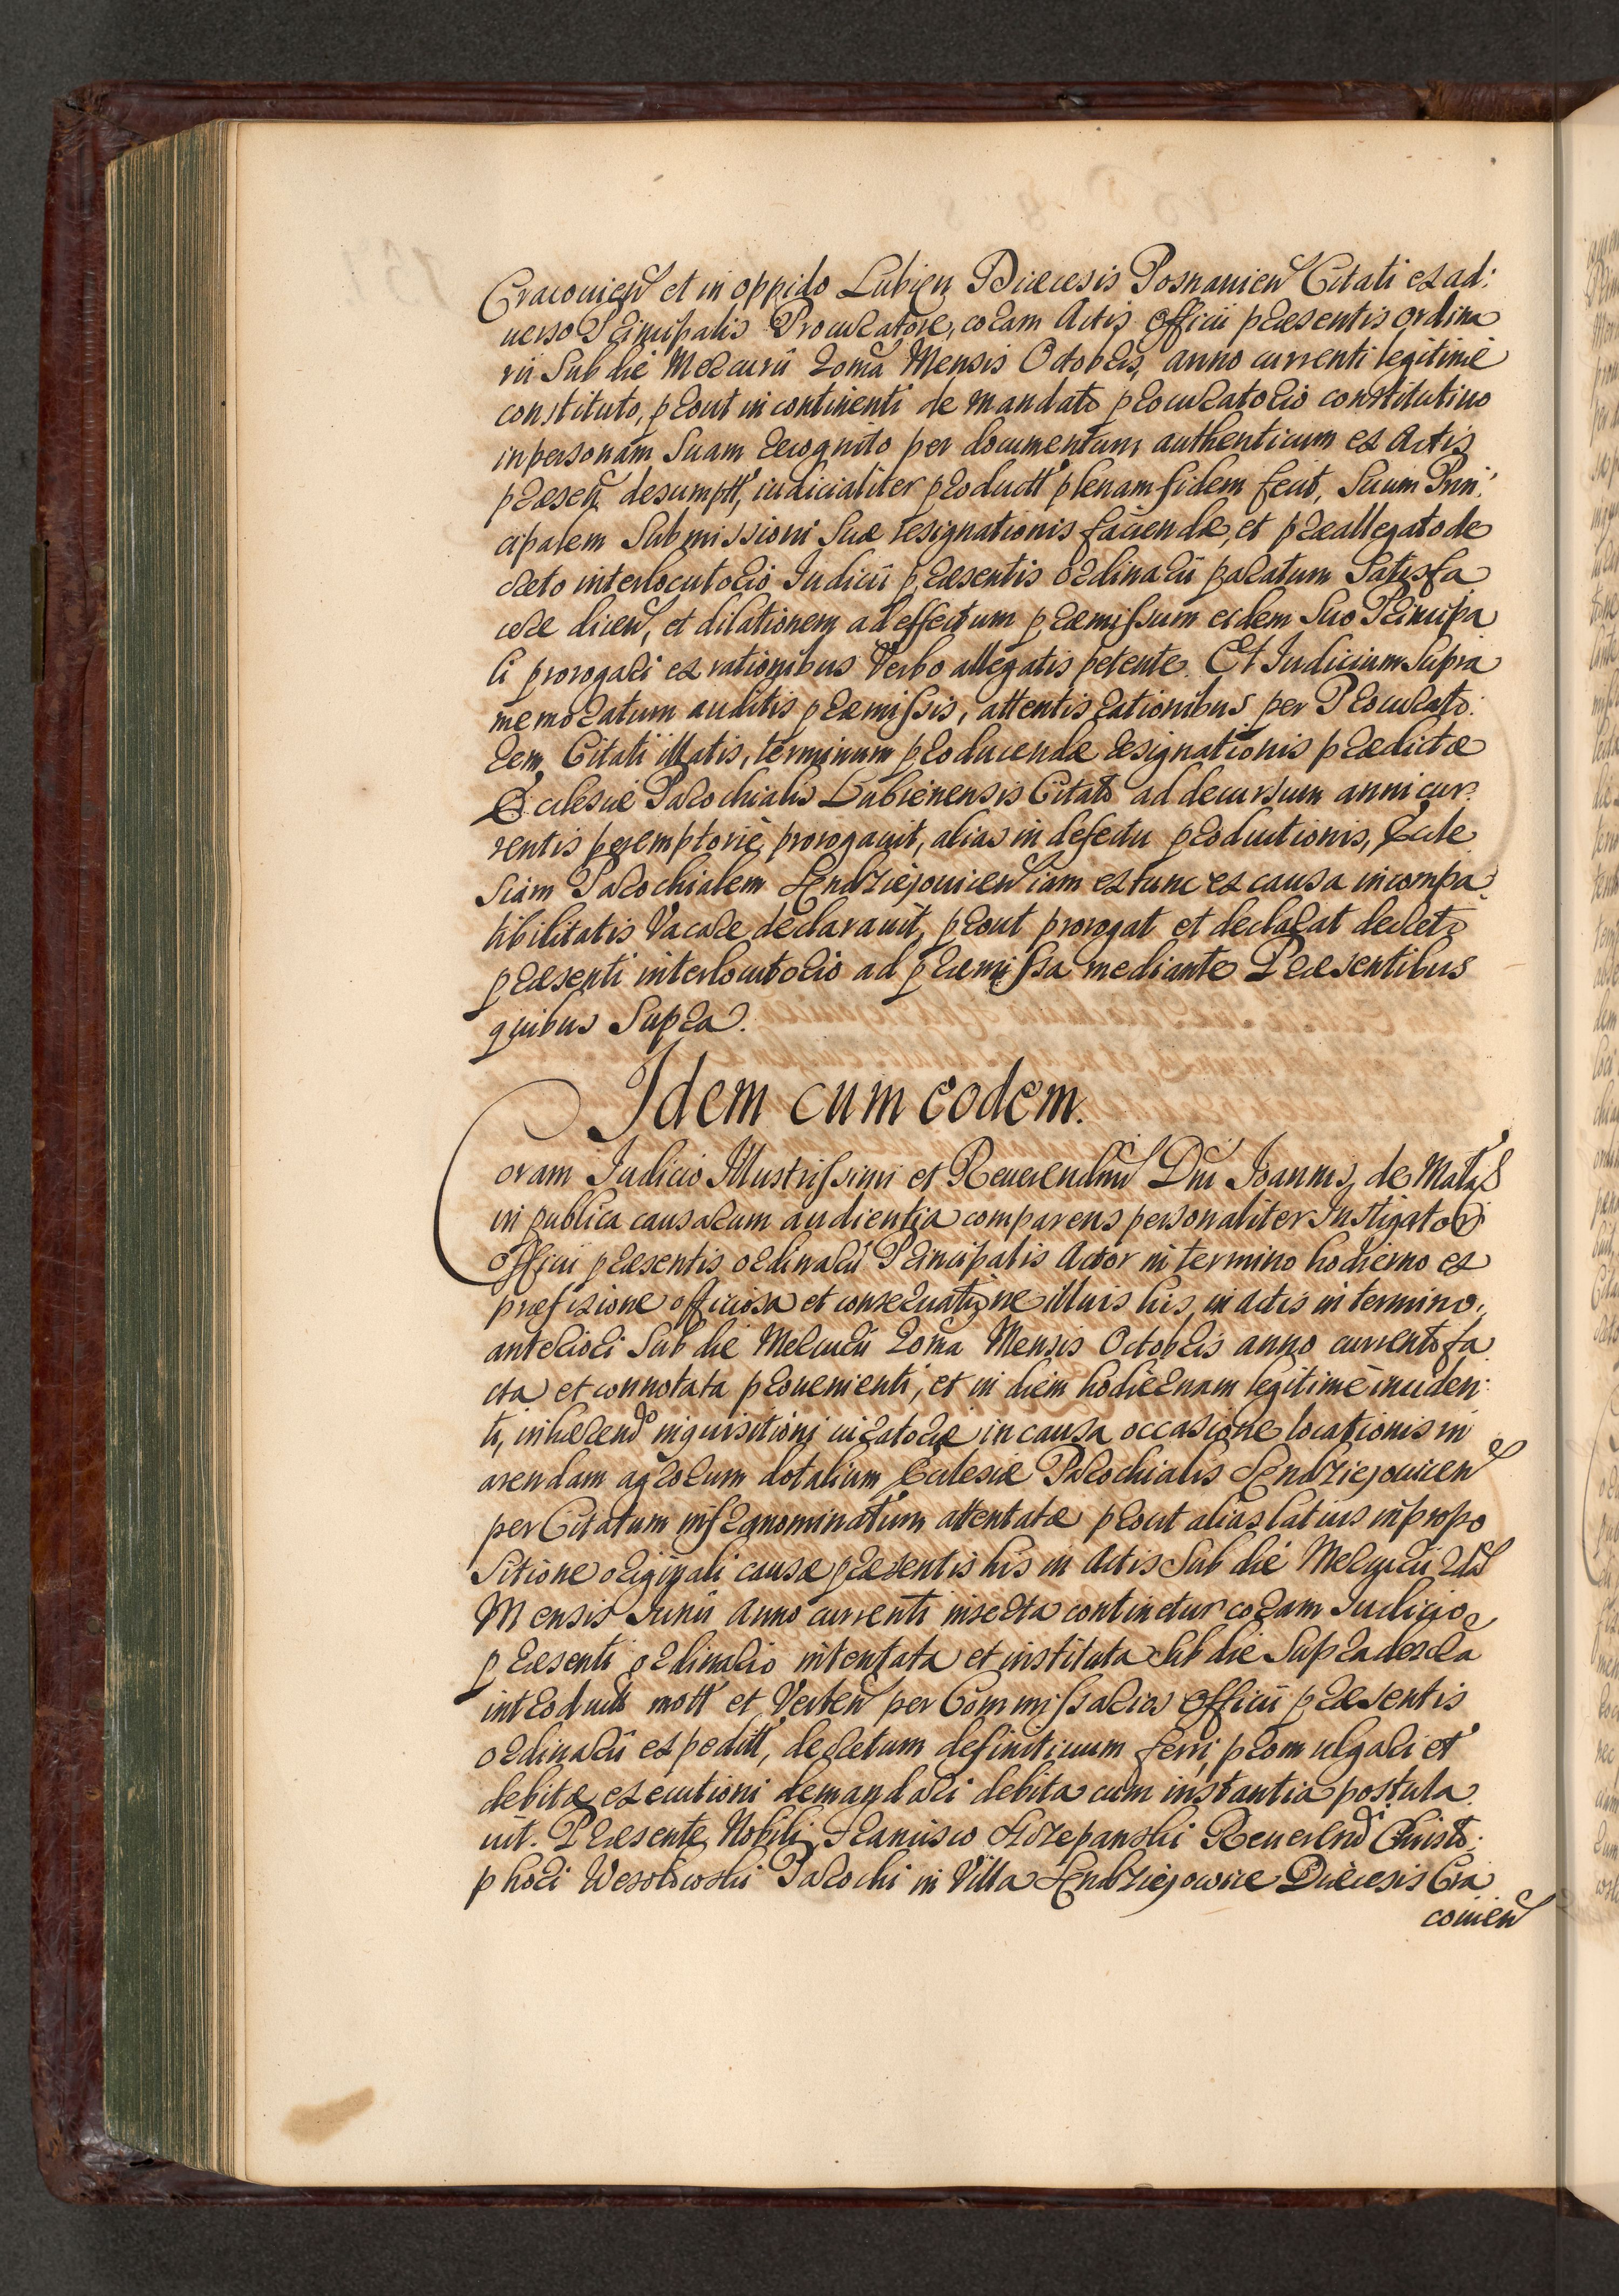 Cracouien et in oppido Lubien Diæcesis Posnanien Citati ex ad:
uerso Principalis Procuratore, coram Actis officii præsentis ordina
rii Sub die Mercurii 20ma Mensis Octobris, anno currenti legitimè
constituto, prout in continenti de mandato procuratorio constitutiuo
in personam Suam recognito per documentum authenticum ex Actis
præsen desumptt, iudicialiter productt plenam fidem fecit, Suum Prin:
cipalem Submissioni Suæ resignationis faciendæ, et præallegato de
creto interlocutorio Iudicii præsentis ordinarii paratum Satisfa
cere dicen, et dilationem ad effectum præmissum eidem Suo Principa
li prorogari ex rationibus Verbo allegatis petente. Et Iudicium Supra
memoratum auditis præmissis, attentis rationibus per Procurato:
rem Citati illatis, terminum producendæ resignationis prædictæ
Ecclesiæ Parochialis Labienensis Citato ad decursum anni cur:
rentis peremptoriè prorogauit, alias in defectu productionis, Eccle
siam Parochialem Sendziejouicen iam ex tunc ex causa incompa:
tibilitatis Vacare declarauit, prout prorogat et declarat decreto
præsenti interlocutorio ad præmissa mediante Præsentibus
quibus Supra.
Idem cum eodem.
Coram Iudicio Illustrissimi et Reuerendmi Dni Ioannis de Mata
in publica causarum audientia comparens personaliter Instigator
officii præsentis ordinarii Principalis Actor in termino hodierno ex
præfixione officiosa et conseruatione illius his in actis in termino
anteriori Sub die Mercurii 20ma Mensis Octobris anno currento fa
cta et connotata prouenienti, et in diem hodiernam legitimè inciden:
ti, inhærendo inquisitioni iuratoriæ in causa occasione locationis in
arendam agrorum dotalium Ecclesiæ Parochialis Sendziejouicen
per Citatum infranominatum attentatæ prout alias latius in propo
sitione originali causæ præsentis his in Actis Sub die Mercurii 2da
Mensis Iunii Anno currenti inserta continetur coram Iudicio
præsenti ordinario intentata et instituta Sub die Supradescra
introductt mott et Verten per Commissarios officii præsentis
ordinarii expeditt, decretum definitiuum ferri, promulgari et
debitæ executioni demandari debita cum instantia postula
uit. Præsente Nobili Francisco Szczepanski Reuerend Christo:
phori Wesołowski Parochi in Villa Sendziejowice Diæcesis Cra
couien